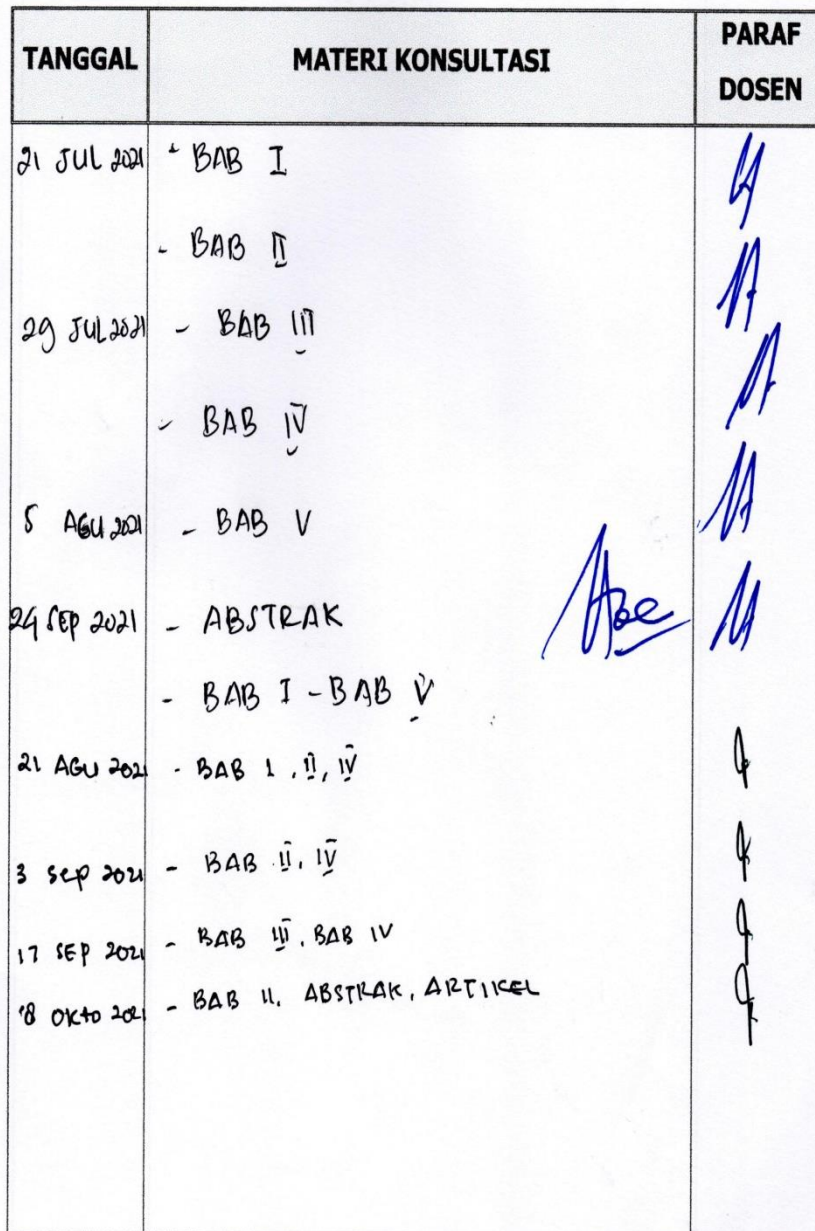 TANGGAL MATERI KONSULTASI PARAF DOSEN
21 JUL 2021 - BAB I
- BAB II
29 JUL 2021 - BAB III
- BAB IV
5 AGU 2021 - BAB V
24 SEP 2021 - ABSTRAK
- BAB I - BAB V
21 AGU 2021 - BAB I, II, IV
3 Sep 2021 - BAB II, IV
17 SEP 2021 - BAB III, BAB IV
OKto 2021 - BAB II, ABSTRAK, ARTIKEL